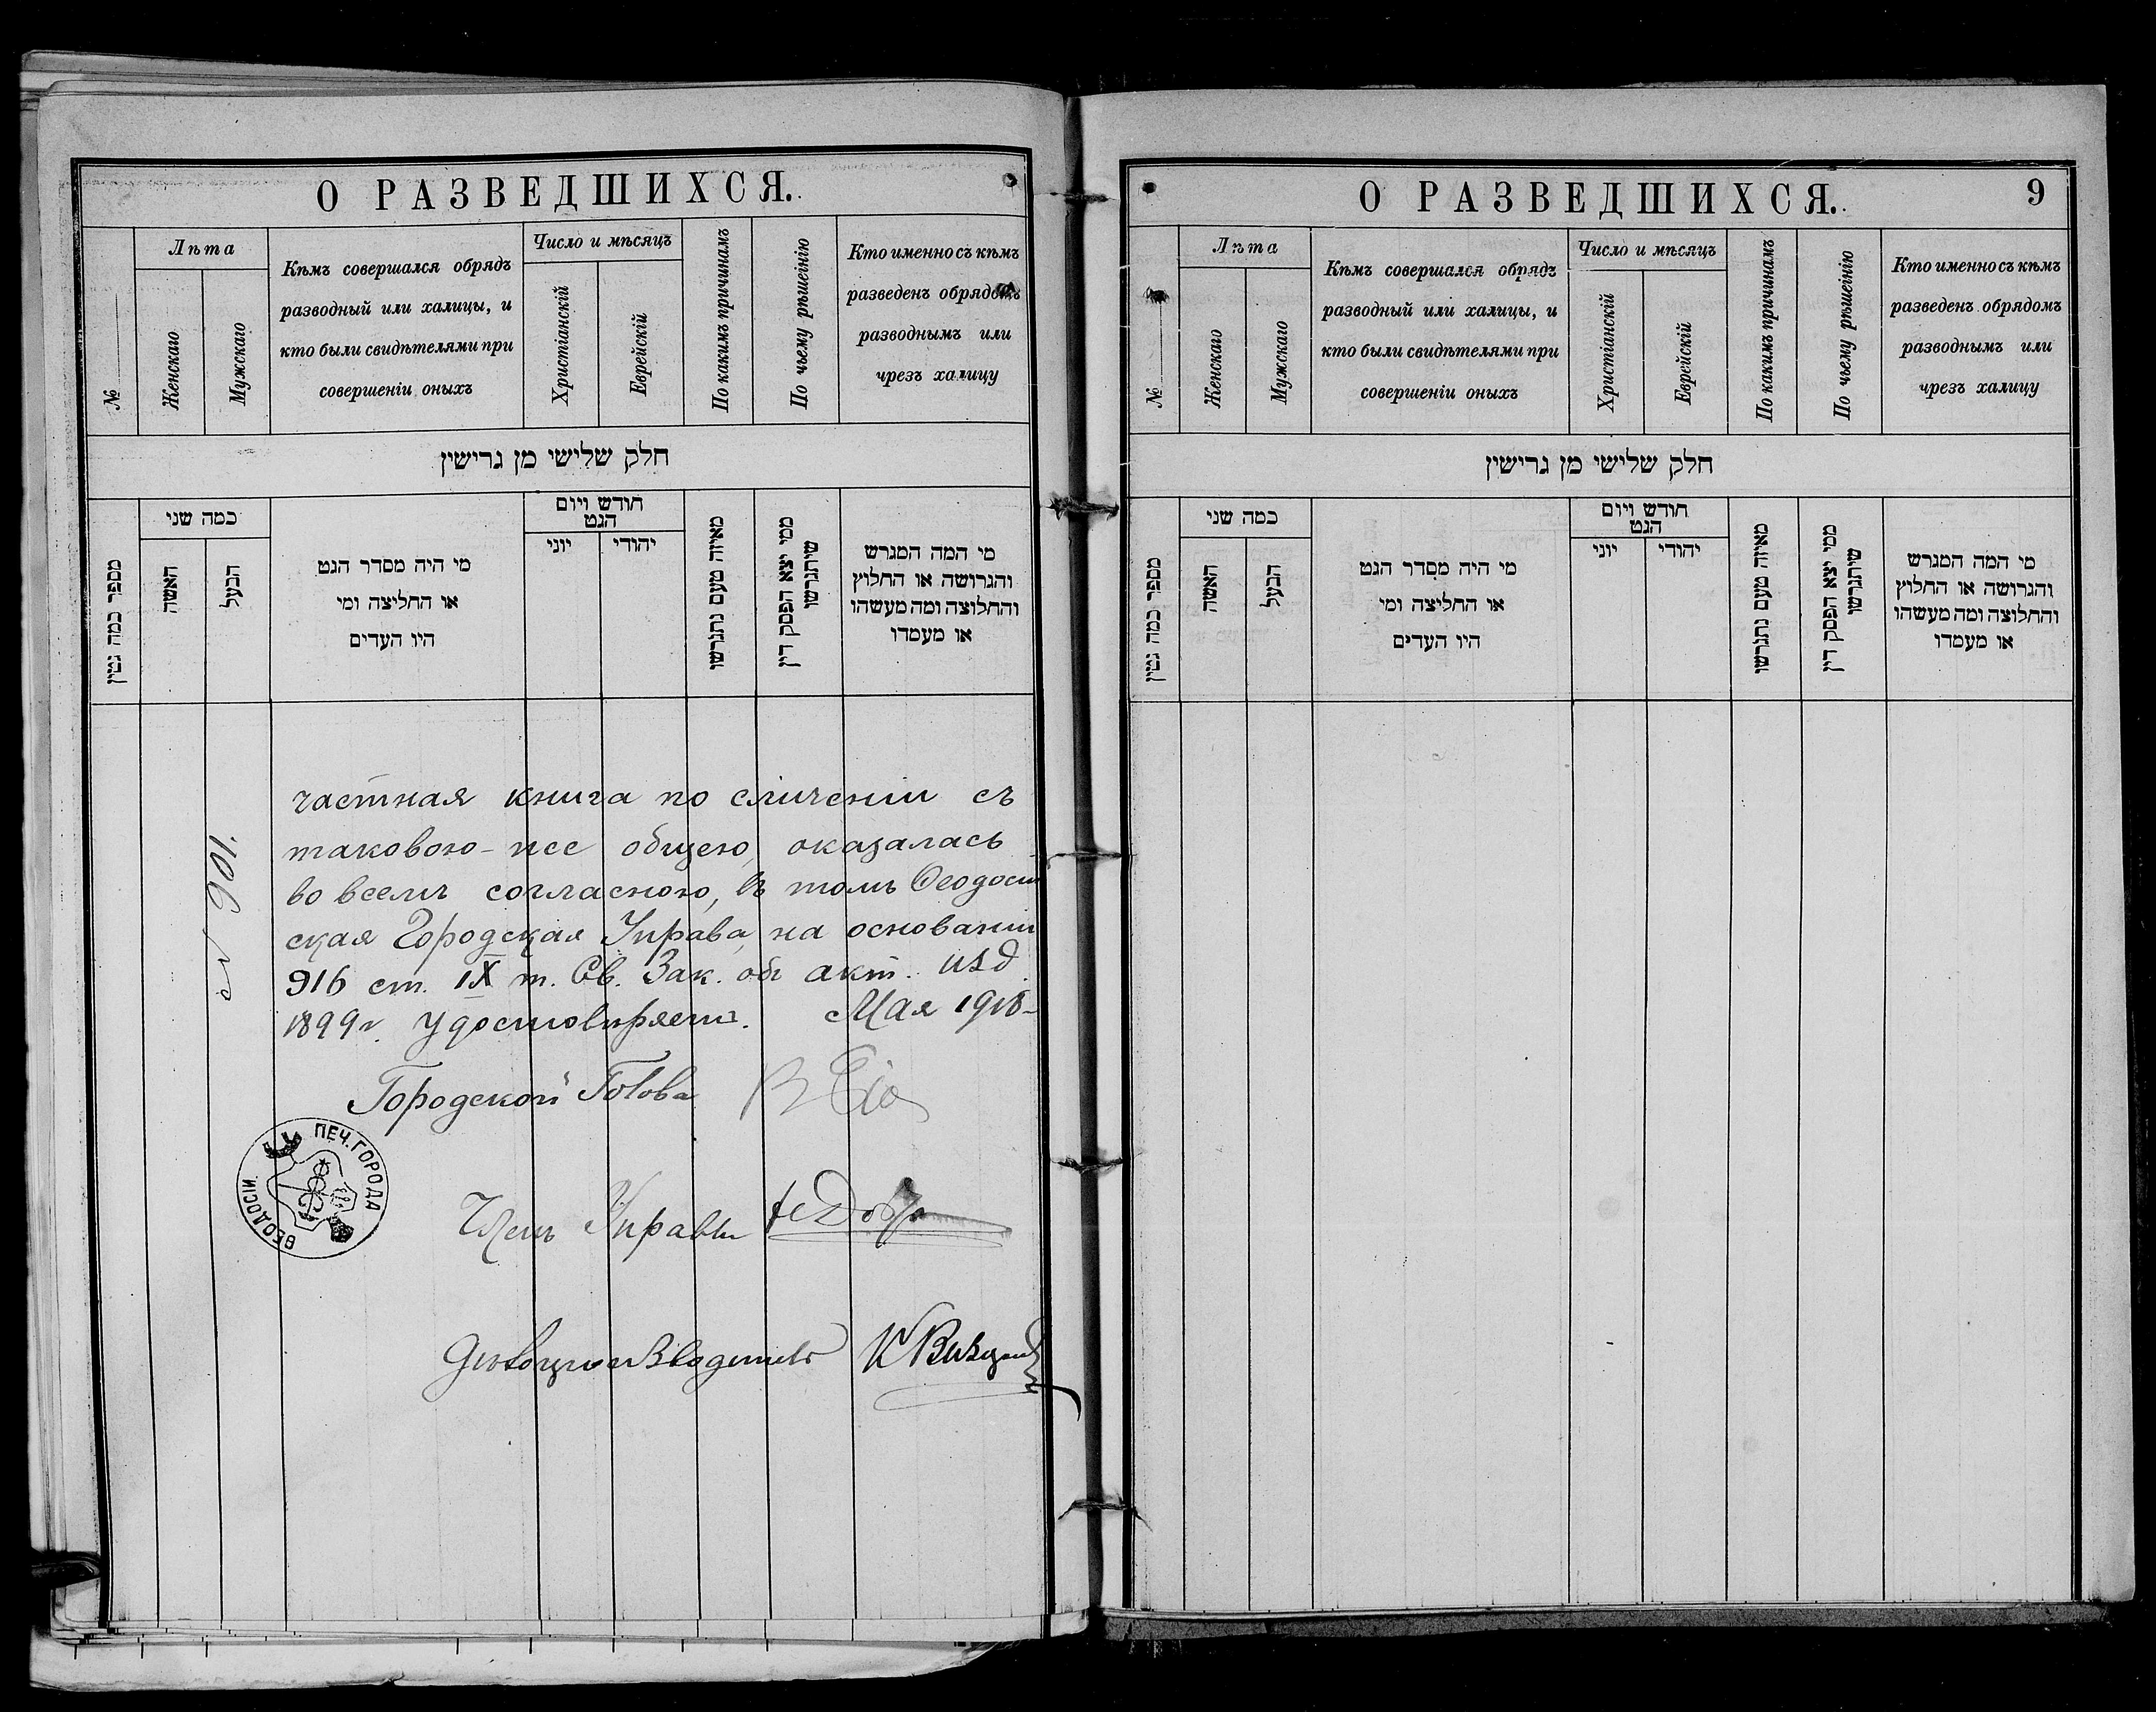 О РАЗВЕДШИХСЯ.
№
Лѣта
Женскаго
Мужскаго
Кѣмъ совершался обрядъ
разводный или халицы, и
кто были свидѣтелями при
совершеніи оныхъ
Число и мѣсяцъ
Христіанскій
Еврейскій
По какимъ причинамъ
По чьему рѣшеінію
Кто именно съ кѣмъ
разведенъ обрядомъ
разводнымъ или
чрезъ халицу
חלק שלישי מן גרישין
מספר כמה גטין
כמה שני
האשה
הבעל
מי היה מסדר הגט
או החליצה ומי
היו העדים
חודש ויום
הגט
יוני
יהודי
מאיזה טעם נתגרשו
ממי יצא הפסק דין
שיתגרשו
מי המה המגרש
והגרושה או החלוץ
והחלוצה ומה מעשהו
או מעמדו
частная книга по сличеніи съ
таковою-же общею, оказалась
во всемъ согласною, въ томъ Ѳеодосій
ская Городская Управа, на основаніи
916 ст. IX т. Св. Зак. объ акт. изд.
1899 г. удостовѣряетъ. Мая
№ 901.
Городской Голова
Членъ Управы
Дѣлопроизводитель
ПЕЧ. ГОРОДА
ѲЕОДОСІИ.
О РАЗВЕДШИХСЯ.
9
№
Лѣта
Женскаго
Мужскаго
Кѣмъ совершался обрядъ
разводный или халицы, и
кто были свидѣтелями при
совершеніи оныхъ
Число и мѣсяцъ
Христіанскій
Еврейскій
По какимъ причинамъ
По чьему рѣшеінію
Кто именно съ кѣмъ
разведенъ обрядомъ
разводнымъ или
чрезъ халицу
חלק שלישי מן גרישין
מספר כמה גטין
כמה שני
האשה
הבעל
מי היה מסדר הגט
או החליצה ומי
היו העדים
חודש ויום
הגט
יוני
יהודי
מאיזה טעם נתגרשו
ממי יצא הפסק דין
שיתגרשו
מי המה המגרש
והגרושה או החלוץ
והחלוצה ומה מעשהו
או מעמדו